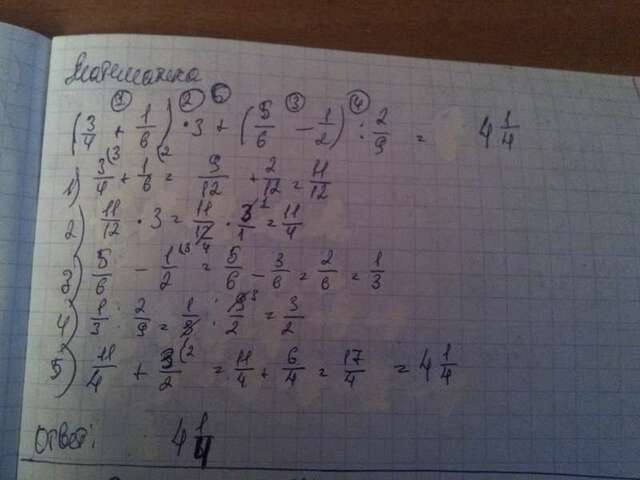 Математика
(3/4 + 1/6) · 3 + (5/6 − 1/2) : 2/9 = 4 1/4
① ② ⑤ ③ ④
1) 3/4 (3 + 1/6 (2 = 9/12 + 2/12 = 11/12
2) 11/12 · 3 = 11/12 4 · 3/1 1 = 11/4
3) 5/6 − 1/2 (3 = 5/6 − 3/6 = 2/6 = 1/3
4) 1/3 : 2/9 = 1/3 : 9/2 3 = 3/2
5) 11/4 + 3/2 (2 = 11/4 + 6/4 = 17/4 = 4 1/4
Ответ: 4 1/4